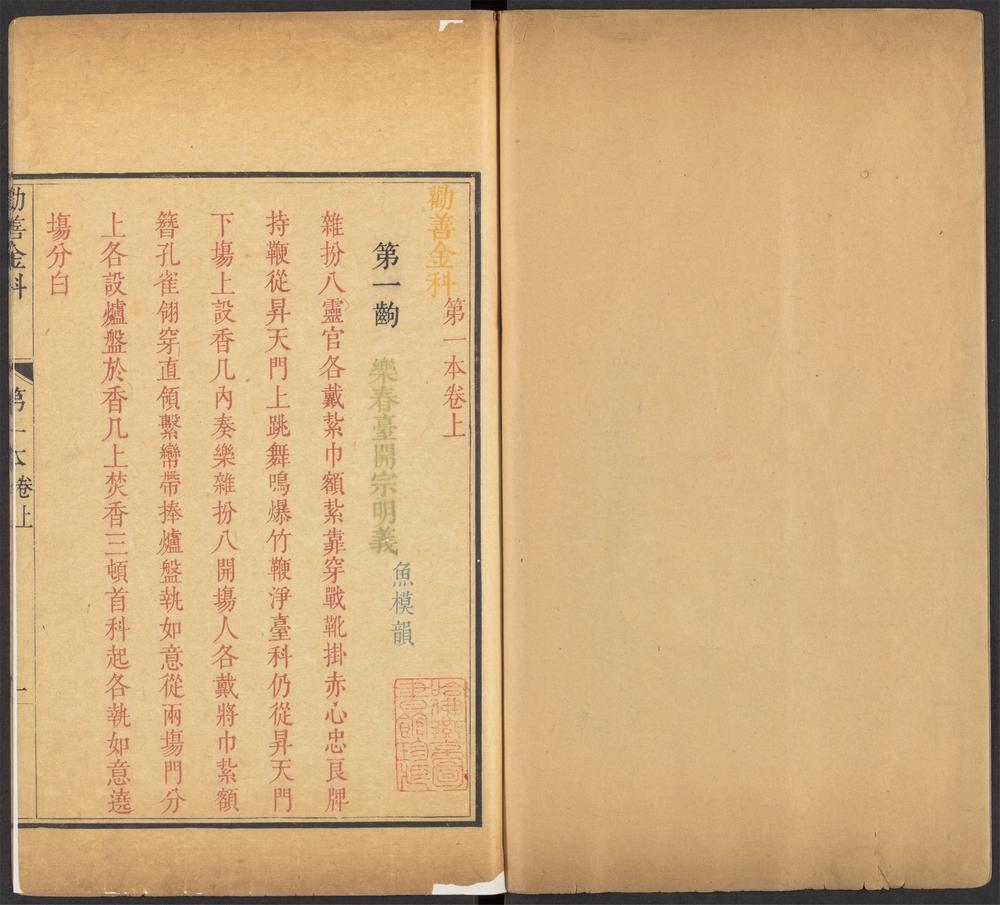 勸善金科
第一本卷上
第一齣
樂春臺開宗明義
魚模韻
雜扮八靈官各戴紮巾額紮靠穿戰靴掛赤心忠良牌
持鞭從昇天門上跳舞鳴爆竹鞭淨臺科仍從昇天門
下塲上設香几內奏樂雜扮八開塲人各戴將巾紮額
簪孔雀翎穿直領繫帶捧爐盤執如意從兩塲門分
上各設爐盤於香几上焚香三頓首科起各執如意遶
塲分白
勸善金科
第一本卷上
一